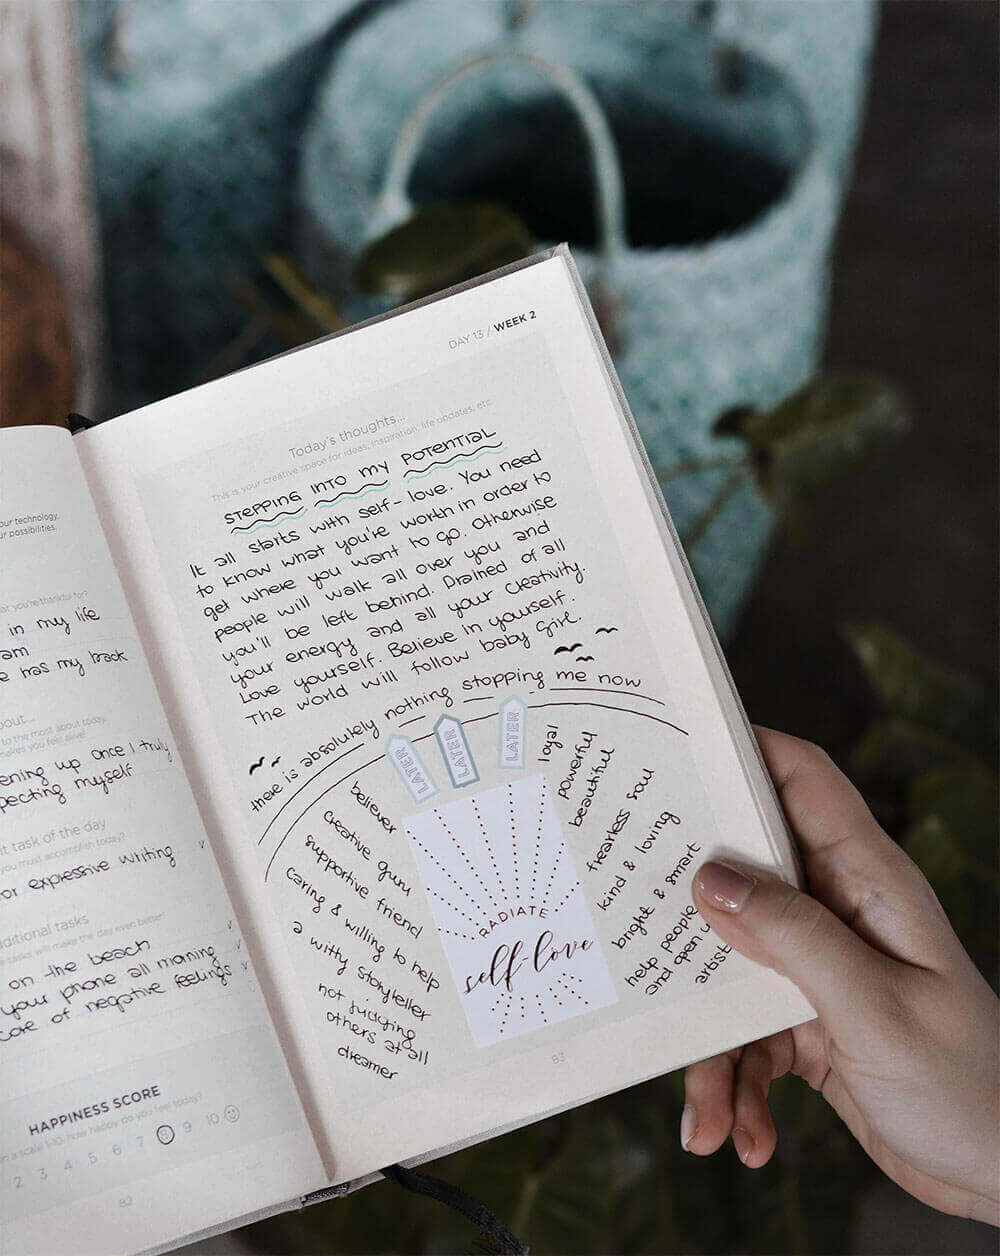 our technology,
ur possibilities.
at you're thankful for?
in my life
am
e has my back
bout...
to the most about today.
makes you feel alive!
ening up once I truly
pecting myself
it task of the day
you must accomplish today?
or expressive writing
ditional tasks
tasks will make the day even better!
on the beach
your phone all morning
care of negative feelings
HAPPINESS SCORE
n a scale 1-10, how happy do you feel today?
2 3 4 5 6 7 8 9 10
82
DAY 13 / WEEK 2
Today's thoughts...
This is your creative space for ideas, inspiration, life updates, etc.
STEPPING INTO MY POTENTIAL
It all starts with self-love. You need
to know what you're worth in order to
get where you want to go. Otherwise
people will walk all over you and
you'll be left behind. Drained of all
your energy and all your creativity.
Love yourself. Believe in yourself.
The world will follow baby girl.
there is absolutely nothing stopping me now
LATER
LATER
LATER
believer
creative guru
supportive friend
caring & willing to help
a witty storyteller
not judging
others at all
dreamer
RADIATE
self-love
loyal
powerful
beautiful
fearless soul
kind & loving
bright & smart
help people
and open
artist
83